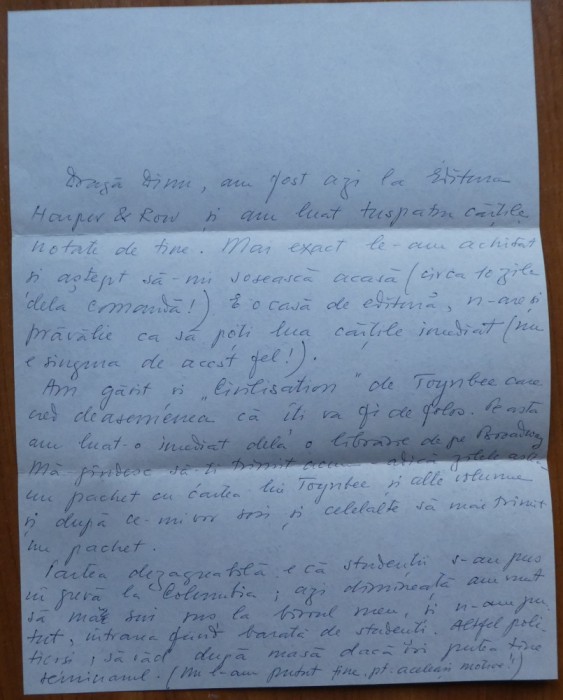 Dragă Dinu, am fost azi la Editura
Harper & Row și am luat tuspatru cărțile
notate de tine. Mai exact le-am achitat
și aștept să-mi sosească acasă (circa 10 zile
dela comandă!) E o casă de editură, n-are și
prăvălie ca să poți lua cărțile imediat (nu
e singura de acest fel!).
Am găsit și „Civilisation" de Toynbee care
cred deasemenea că îți va fi de folos. Pe asta
am luat-o imediat dela o librărie de pe Broadway
Mă gîndesc să-ți trimit acum adică zilele astea
un pachet cu cartea lui Toynbee și alte volume
și după ce-mi vor sosi și celelalte să mai trimit
un pachet.
Partea dezagreabilă e că studenții s-au pus
în grevă la Columbia; azi dimineață am vrut
să mă sui sus la biroul meu, și n-am pu-
tut, intrarea fiind barată de studenți. Altfel poli-
ticoși; să văd după masă dacă îmi putea ține
seminarul. (Nu l-am putut ține, pt. aceleași motive!)